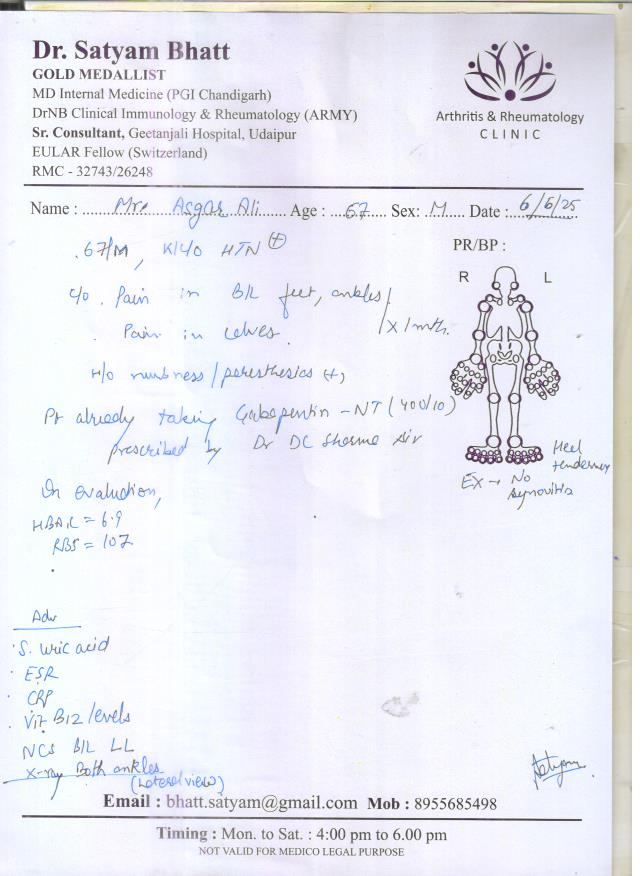 Dr. Satyam Bhatt
GOLD MEDALLIST
MD Internal Medicine (PGI Chandigarh)
DrNB Clinical Immunology & Rheumatology (ARMY)
Sr. Consultant, Geetanjali Hospital, Udaipur
EULAR Fellow (Switzerland)
RMC - 32743/26248
Arthritis & Rheumatology
CLINIC
Name : Mr. Asgar Ali Age : 67 Sex: M Date : 6/6/25
67/M, K/C/O HTN (+)
PR/BP :
R L
C/o. Pain in B/L feet, ankles/
Pain in calves. / X 1 mth.
H/o numbness / paresthesias (+),
Pt already taking Gabapentin - NT (400/10)
prescribed by Dr DC Sharma Sir
Heel tenderness
EX → No synovitis
On evaluation,
HBA1C = 6.9
RBS = 107
Adv
S. Uric acid
ESR
CRP
Vit B12 levels
NCS B/L LL
X-ray Both ankles
(Lateral view)
Satyam
Email : bhatt.satyam@gmail.com Mob : 8955685498
Timing : Mon. to Sat. : 4:00 pm to 6.00 pm
NOT VALID FOR MEDICO LEGAL PURPOSE